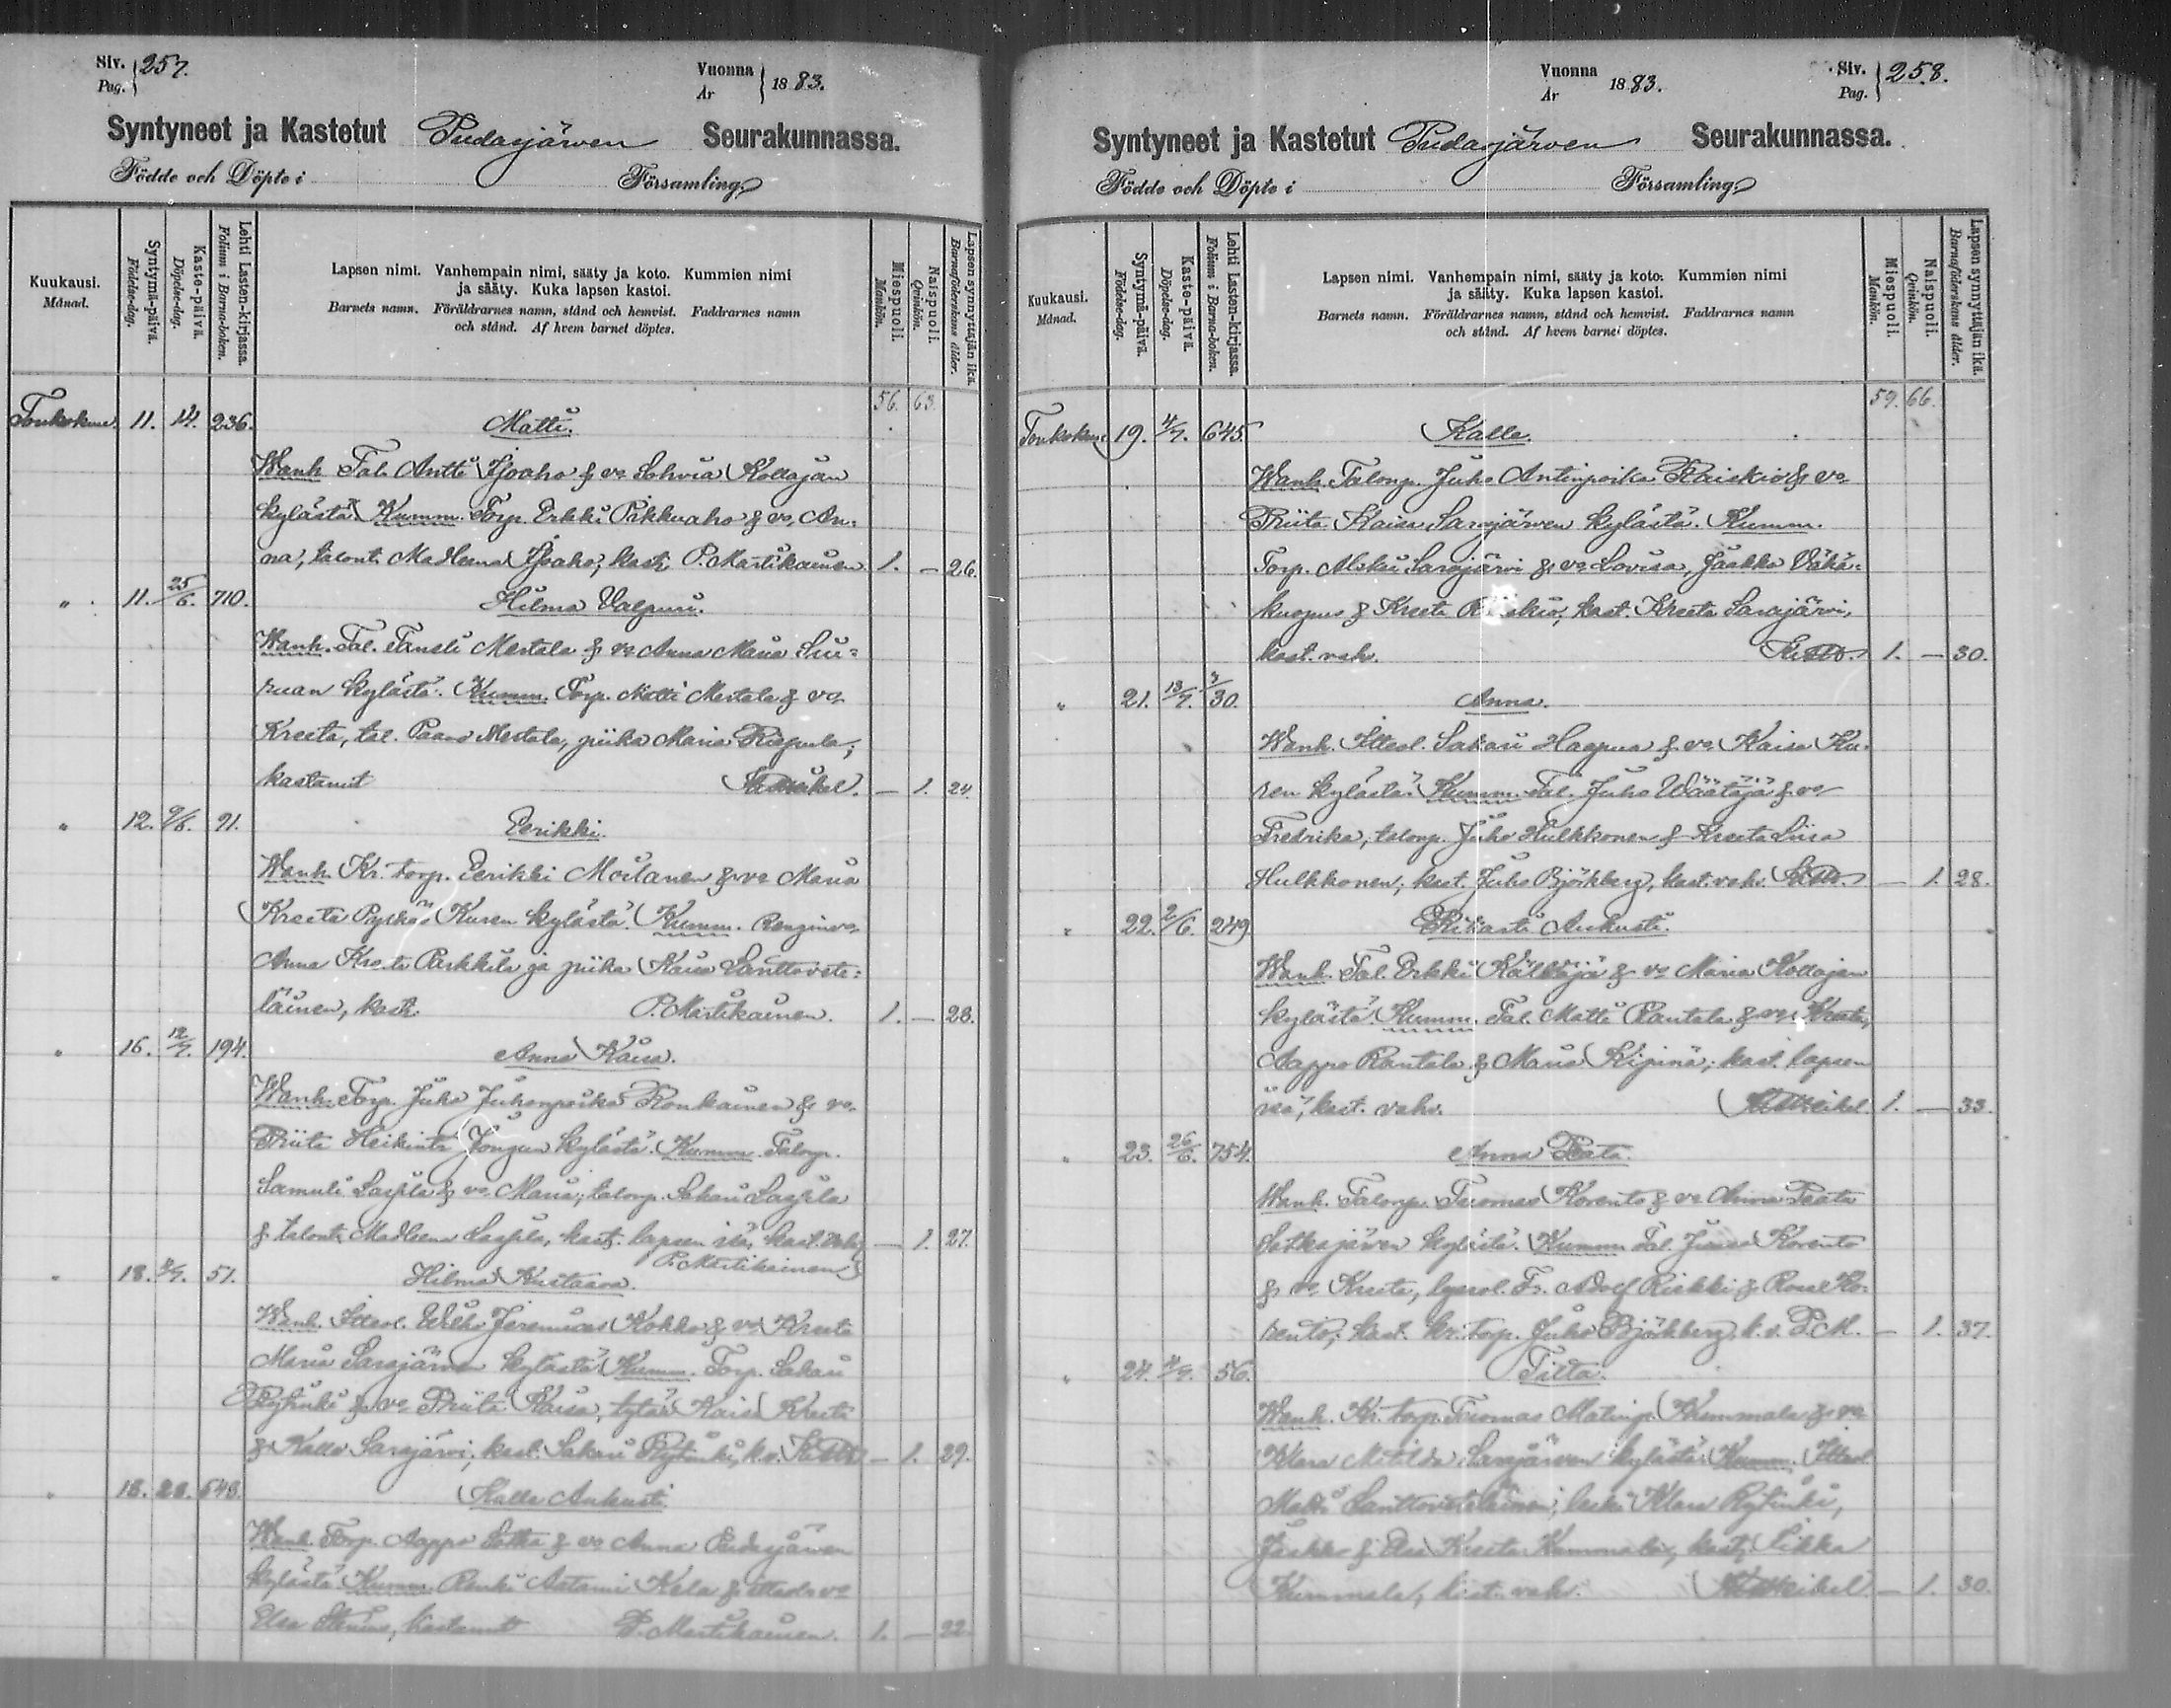 Siv. 257.
Pag.
Vuonna 1883.
År
Syntyneet ja Kastetut Pudasjärven Seurakunnassa.
Födde och Döpte i Församling
Kuukausi. Månad.
Syntymä-päivä. Födelse-dag.
Kaste-päivä. Döpelse-dag.
Lehti Lasten-kirjassa. Folium i Barna-boken.
Lapsen nimi. Vanhempain nimi, sääty ja koto. Kummien nimi
ja sääty. Kuka lapsen kastoi.
Barnets namn. Föräldrarnes namn, stånd och hemvist. Faddrarnes namn
och stånd. Af hvem barnet döptes.
Miespuoli. Mankön.
Naispuoli. Qvinkön.
Lapsen synnyttäjän ikä. Barnaföderskans ålder.
56. 63.
Toukokuu 11. 14. 236. Matti.
Wanh. Tal. Antti Ijoaho & vo Sohvia Kollajan
kylästä. Kumm. Torp. Erkki Pikkuaho & vo, An-
na, talont. Madleena Ijoaho, kast. P. Martikainen. 1. — 26.
" 11. 25/6. 710. Hilma Valpuri.
Wanh. Tal. Taneli Mertala & vo Anna Maria Siu-
ruan kylästä. Kumm. Torp. Matti Mertala & vo
Kreeta, tal. Paavo Mertala, piika Maria Riepula;
kastanut — 1. 24.
" 12. 9/6. 91. Eerikki.
Wanh. Kr. torp. Eerikki Moilanen & vo Maria
Kreeta Pyykäs Kuren kylästä. Kumm. Renginvo
Anna Kreeta Parkkila ja piika Kaisa Santtovete-
läinen, kast. P. Martikainen. 1. — 28.
" 16. 12/7. 194. Anna Kaisa.
Wanh. Torp. Juho Juhonpoika Ronkainen & vo
Priita Heikintr Jongun kylästä. Kumm. Talonp.
Samuli & vo Maria; talonp. Sakari
& talont. Madleena kast. lapsen isä, kast. vahv. — 1. 27.
P. Martikainen
" 18. 51. Hilma Kustaava.
Wanh. Itsel. Jeremias Kokko & vo Kreeta
Maria Sarajärven kylästä. Kumm. Torp. Sakari
Rytinki & vo Priita Kaisa, tytär Kaisa Kreeta
& Kalle Sarajärvi, kast. Sakari Rytinki, k.v. — 1. 29.
" 18. 28. 648. Kalle Aukusti.
Wanh. Torp. Aappo Sotka & vo Anna Pudasjärven
kylästä. Kumm. Renki Aatami Kela & itsels vo
Elsa kastanut P. Martikainen. 1. — 22.
Vuonna 1883.
År
Siv. 258.
Pag.
Syntyneet ja Kastetut Pudasjärven Seurakunnassa.
Födde och Döpte i Församling
Kuukausi. Månad.
Syntymä-päivä. Födelse-dag.
Kaste-päivä. Döpelse-dag.
Lehti Lasten-kirjassa. Folium i Barna-boken.
Lapsen nimi. Vanhempain nimi, sääty ja koto. Kummien nimi
ja sääty. Kuka lapsen kastoi.
Barnets namn. Föräldrarnes namn, stånd och hemvist. Faddrarnes namn
och stånd. Af hvem barnet döptes.
Miespuoli. Mankön.
Naispuoli. Qvinkön.
Lapsen synnyttäjän ikä. Barnaföderskans ålder.
59. 66.
Toukokuu 19. 4/7. 645. Kalle.
Wanh. Talonp. Juho Antinpoika Raiskio & vo
Priita Kaisa Sarajärven kylästä. Kumm.
Torp. Sarajärvi & vo Lovisa, Jaakko Väkä-
kuopus & Kreeta Raiskio, kast. Kreeta Sarajärvi,
kast. vahv. 1. — 30.
" 21. 13/7. 30. Anna.
Wanh. Itsel. Sakari Haapua & vo Kaisa Ku-
ren kylästä. Kumm. Tal. Juho Väätäjä & vo
Fredrika, talonp. Juho Hulkkonen & Kreeta Liisa
Hulkkonen, kast. Juho Björkberg, kast. vahv. — 1. 28.
" 22. 2/6. 249 Rikarti Aukusti.
Wanh. Tal. Erkki Kälkäjä & vo Maria Kollajan
kylästä. Kumm. Tal. Matti Rantala & vo Kreeta,
Aappo Rantala & Maria Kipinä; kast. lapsen
isä, kast. vahv. 1. — 33.
" 23. 26/6. 754. Anna Peata.
Wanh. Talonp. Tuomas Korento & vo Anna Peata
Sotkajärven kylästä. Kumm. Tal. Korento
& vo Kreeta, Fr. Adolf Riekki & Ko-
rento; kast. kr. torp. Juho Björkberg, k. v. P. M. — 1. 37.
" 24. 4/7. 56. Tilta.
Wanh. Kr. torp. Tuomas Matinp. Kummala & vo
Klara Matilda Sarajärven kylästä. Kumm. Itsel
Matti Santtoveteläinen, leski Klara Rytinki,
Jaakko & Elsa Kreeta Kummala, kast. Likka
Kummala, kast. vahv. — 1. 30.